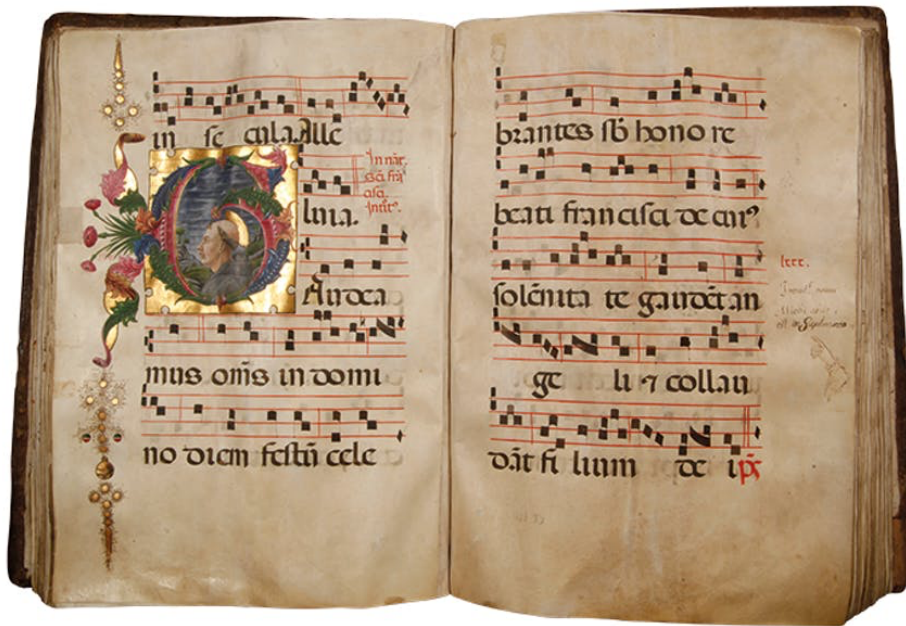 in se cula. Alle
In nat̄.
sc̄i frā
cisci.
luia.
G
Audea
mus om̄s in domi
no diem festū cele
brantes sb̄ hono re
beati francisci de cuiꝰ
solēnita te gaudēt an
ge li ⁊ collau
dāt fi lium de i p̄s